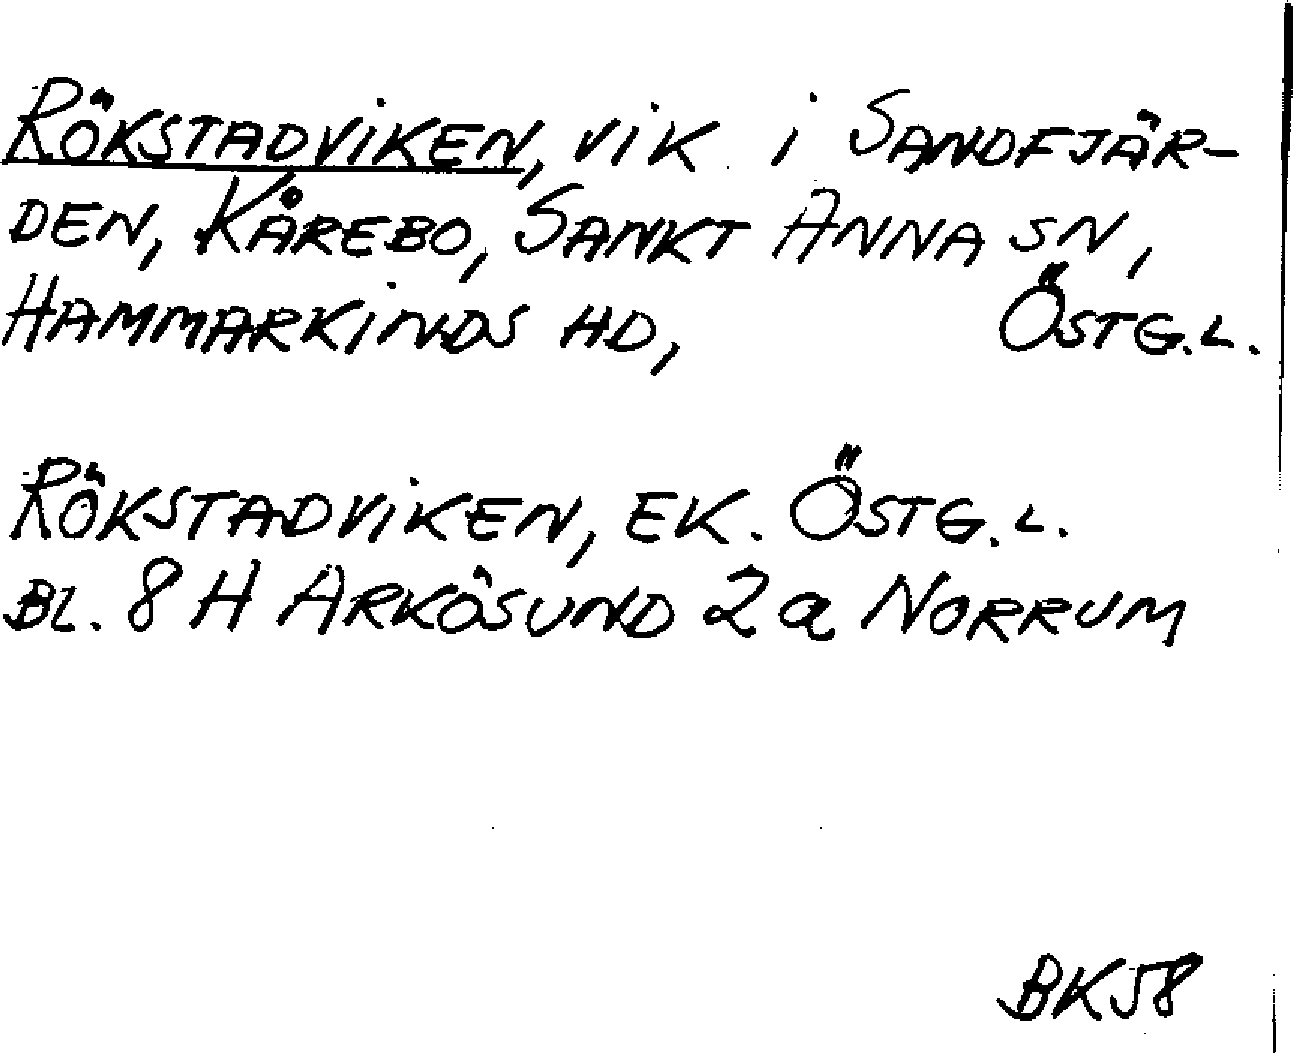 RÖKSTADVIKEN, VIK i SANDFJÄR-
DEN, KÅREBO, SANKT ANNA SN,
HAMMARKINDS HD, ÖSTG.L.
RÖKSTADVIKEN, EK. ÖSTG.L.
BL. 8 H ARKÖSUND 2 a NORRUM
BK58